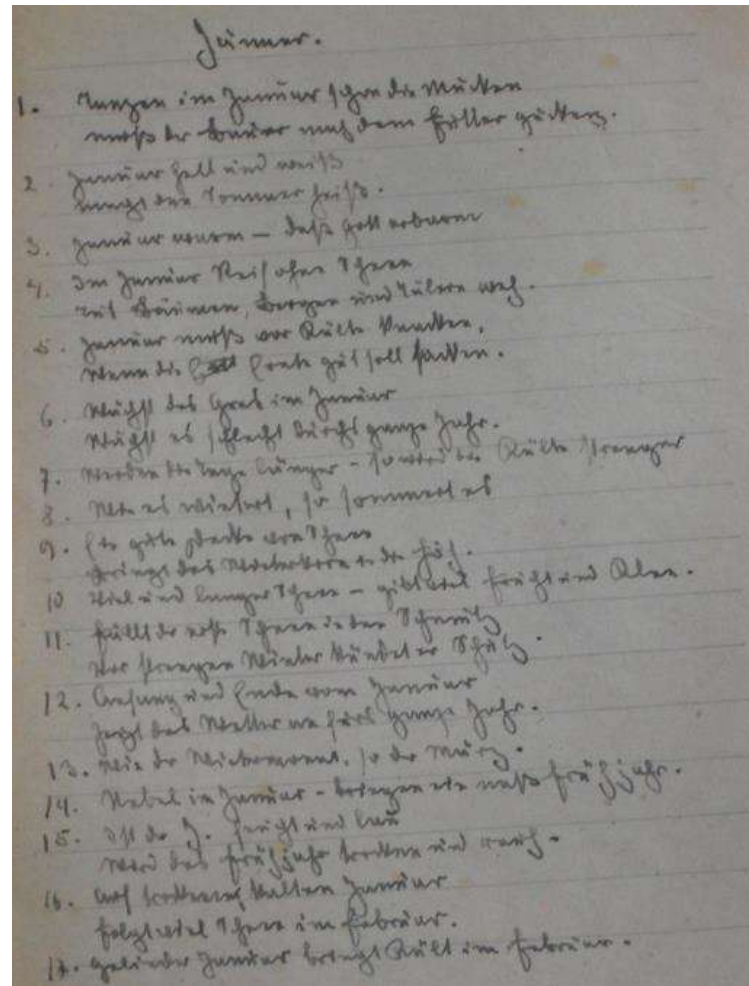 Jänner.
1. Tanzen im Januar schon die Mücken
muß der Bauer nach dem Futter gucken.
2. Januar hell und weiß
macht den Sommer heiß.
3. Januar warm – daß Gott erbarm
4. Im Januar Reif ohne Schnee
tut Bäumen, Bergen und Tälern weh.
5. Januar muß vor Kälte knacken,
wenn die Ernte gut soll sacken.
6. Wächst das Gras im Januar
wächst es schlecht durchs ganze Jahr.
7. Werden die Tage länger – so wird die Kälte strenger
8. Wie es wintert, so sommert es
9. Ein gute Decke von Schnee
bringt das Winterkorn in die Höh.
10 Viel und langer Schnee – gibt viel Frucht und Klee.
11. Fällt der erste Schnee in den Schmutz
vor strengem Winter kündet er Schutz.
12. Anfang und Ende vom Januar
zeigt das Wetter an fürs ganze Jahr.
13. Wie der Wintermonat, so der März.
14. Nebel im Januar – bringen ein naß Frühjahr.
15. Ist der J. feucht und lau
wird das Frühjahr trocken und rauh.
16. Auf trockenen, kalten Januar
folgt viel Schnee im Februar.
17. Gelinder Januar bringt Kält im Februar.